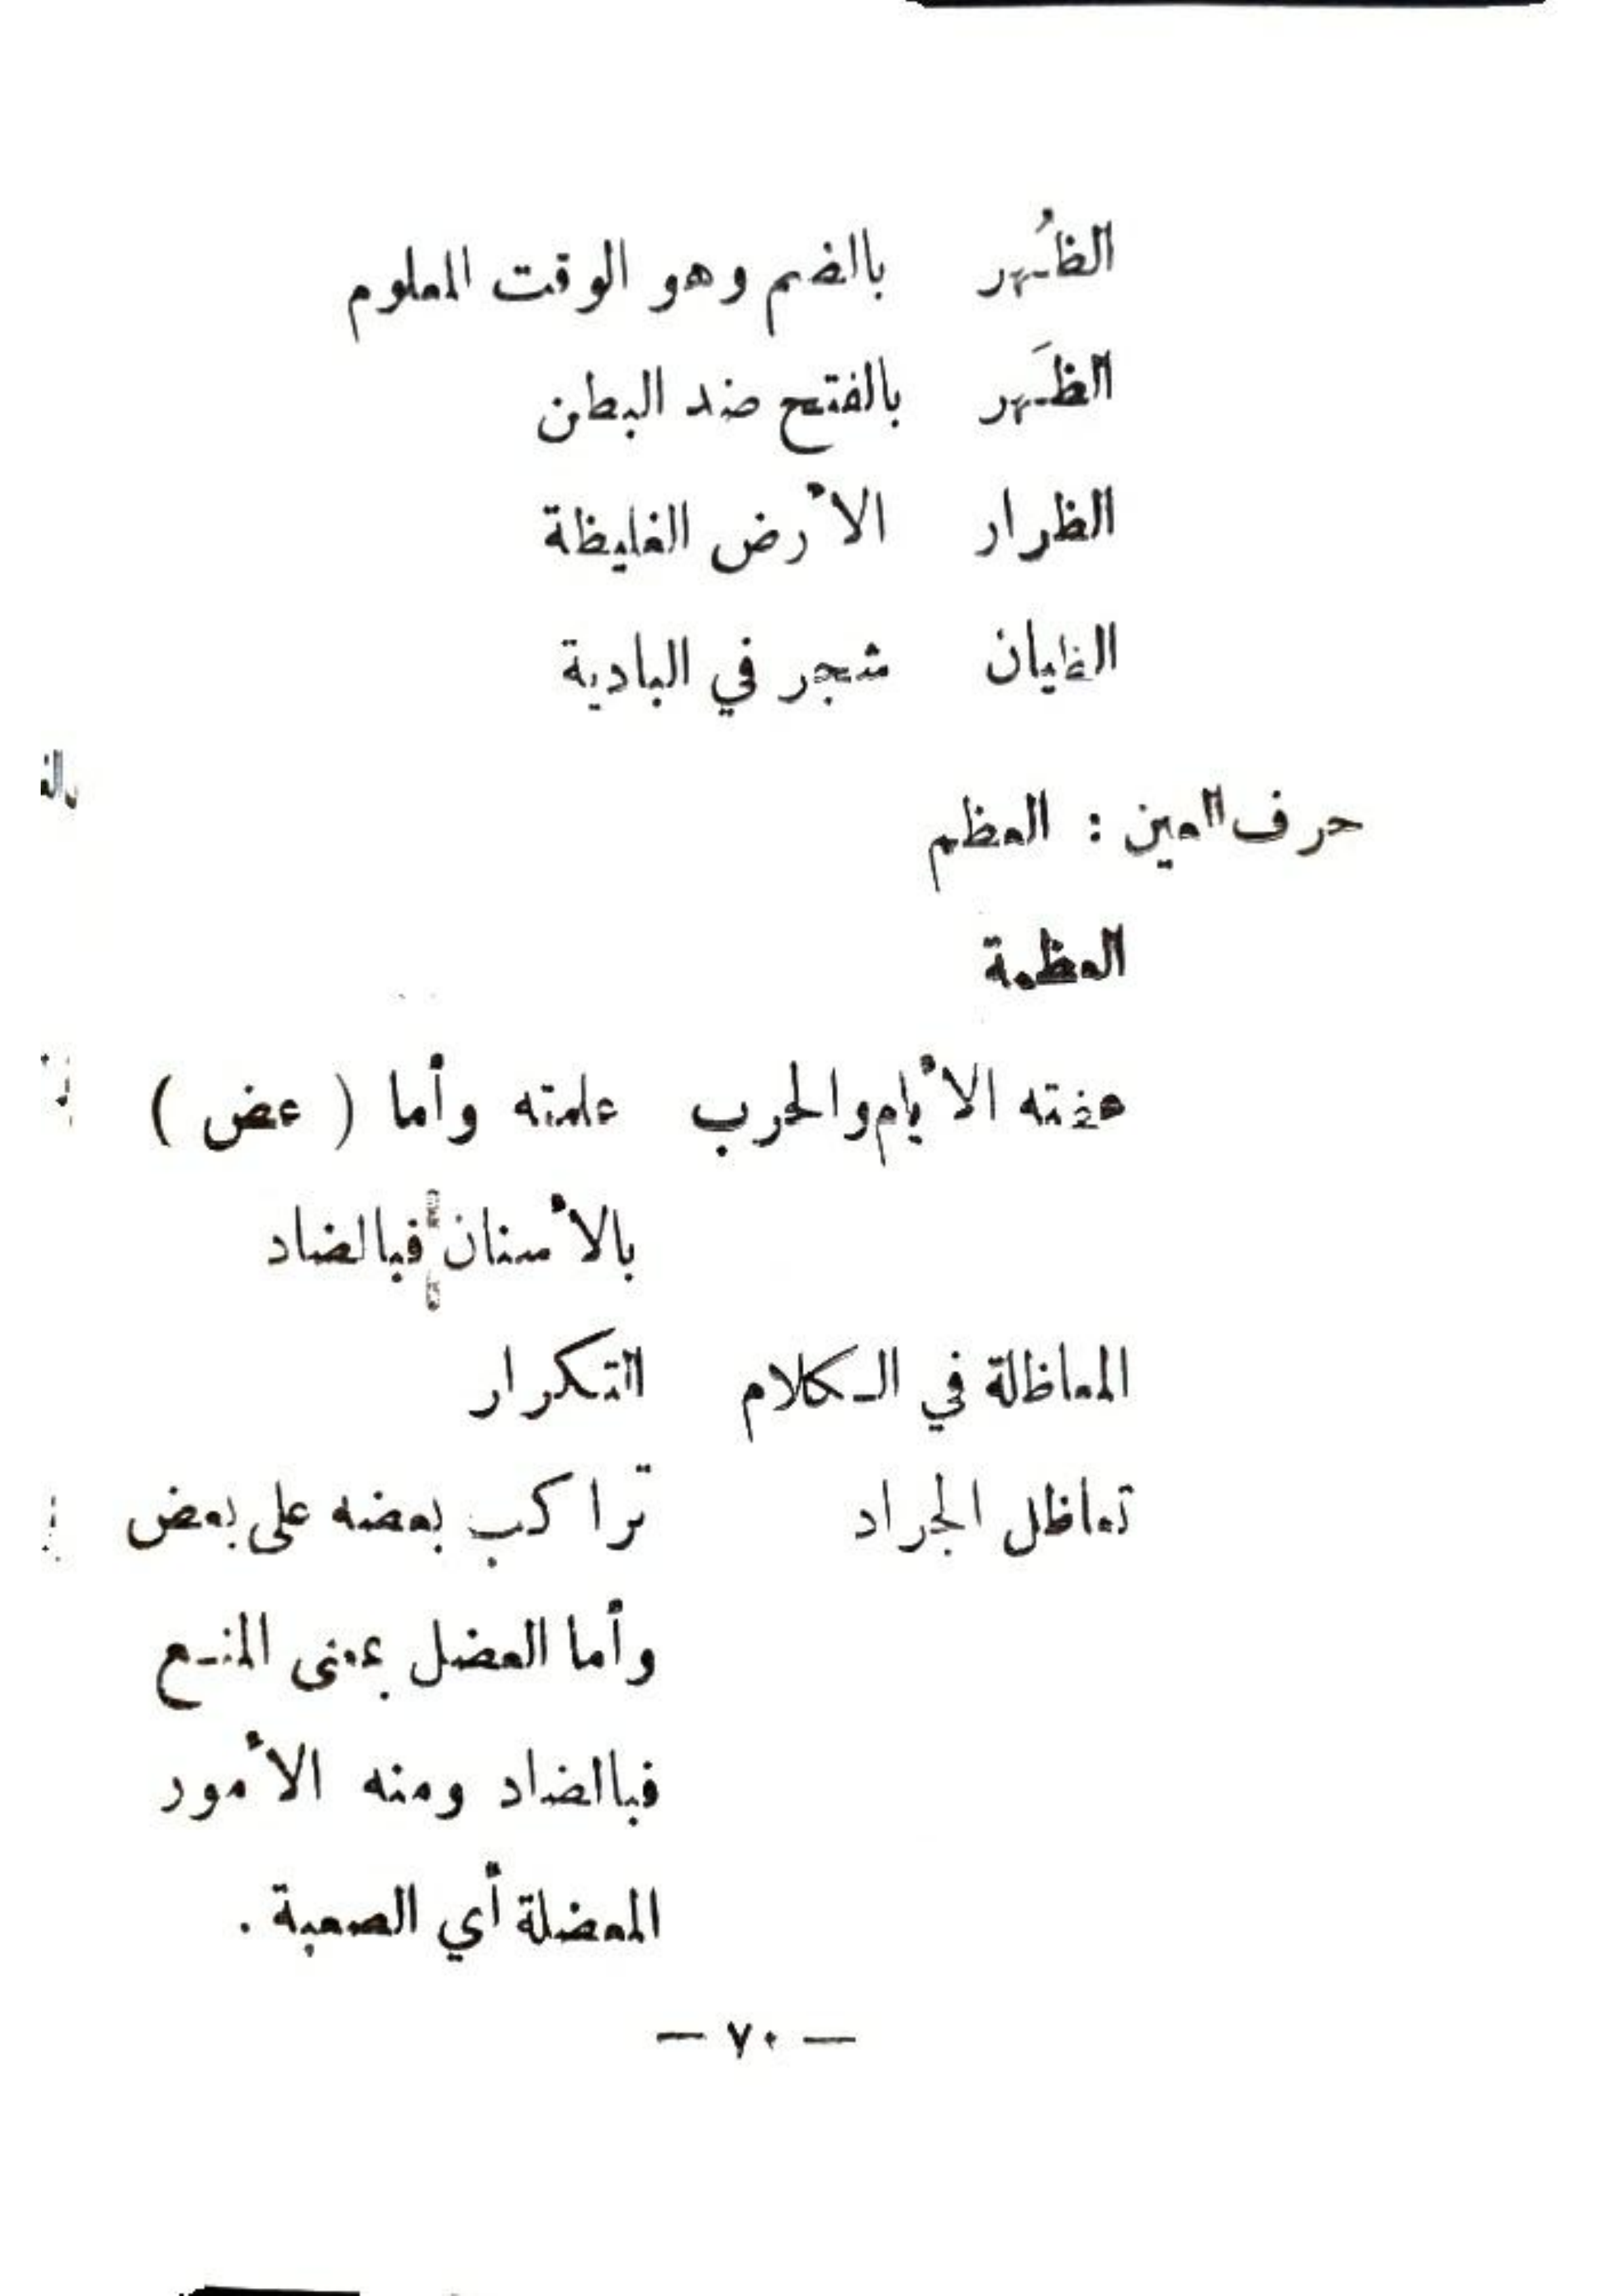 الظُهر بالضم وهو الوقت المعلوم
الظَهر بالفتح ضد البطن
الظرار الأرض الغليظة
الظيان شجر في البادية
حرف العين : العظم
العظمة
الأيام والحرب علمته وأما ( عض )
بالأسنان فبالضاد
المعاظلة في الكلام التكرار
تعاظل الجراد تراكب بعضه على بعض
وأما العضل بمعنى المنع
فبالضاد ومنه الأمور
المعضلة أي الصعبة .
— ٧٠ —